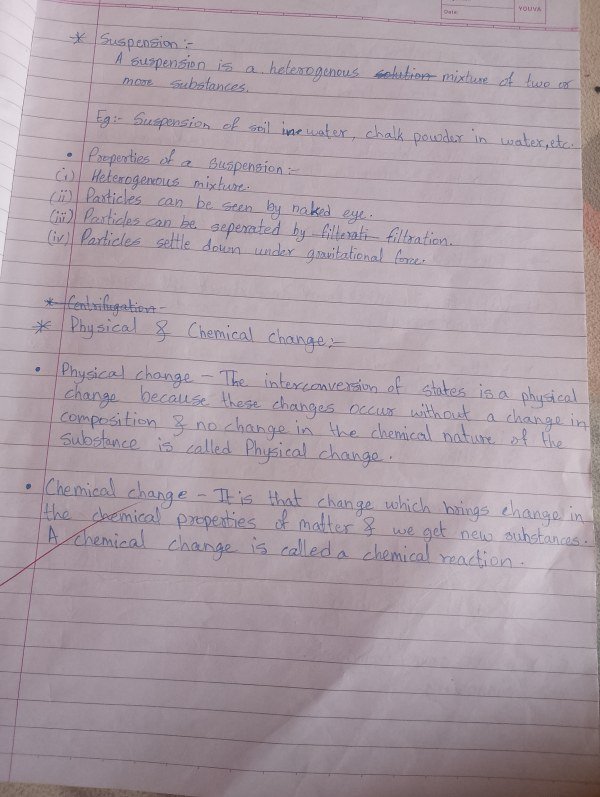 Date:
YOUVA
* Suspension :-
A suspension is a heterogenous solution mixture of two or
more substances.
Eg:- Suspension of soil in water, chalk powder in water, etc.
• Properties of a suspension :-
(i) Heterogenous mixture.
(ii) Particles can be seen by naked eye.
(iii) Particles can be seperated by filterati filtration.
(iv) Particles settle down under gravitational force.
* Centrifugation -
* Physical & Chemical change :-
• Physical change - The interconversion of states is a physical
change because these changes occur without a change in
composition & no change in the chemical nature of the
substance is called Physical change.
• Chemical change - It is that change which brings change in
the chemical properties of matter & we get new substances.
A chemical change is called a chemical reaction.